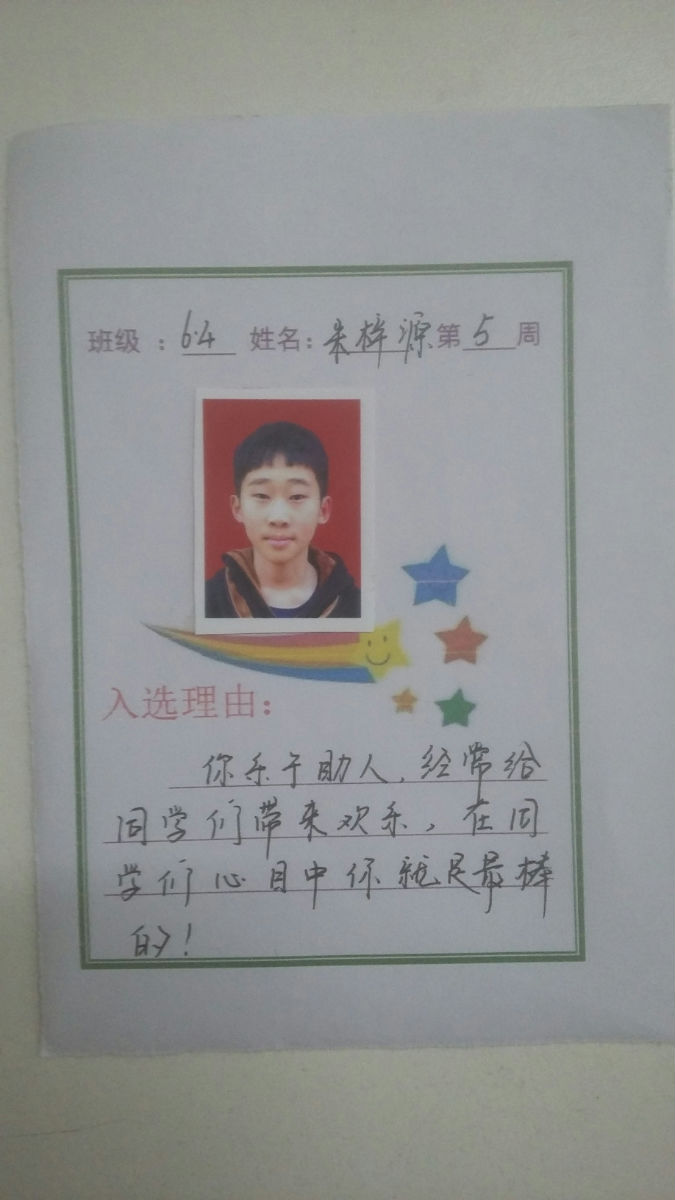 班级：6.4 姓名：朱梓源第5周
入选理由：
你乐于助人，经常给
同学们带来欢乐，在同
学们心目中你就是最棒
的！